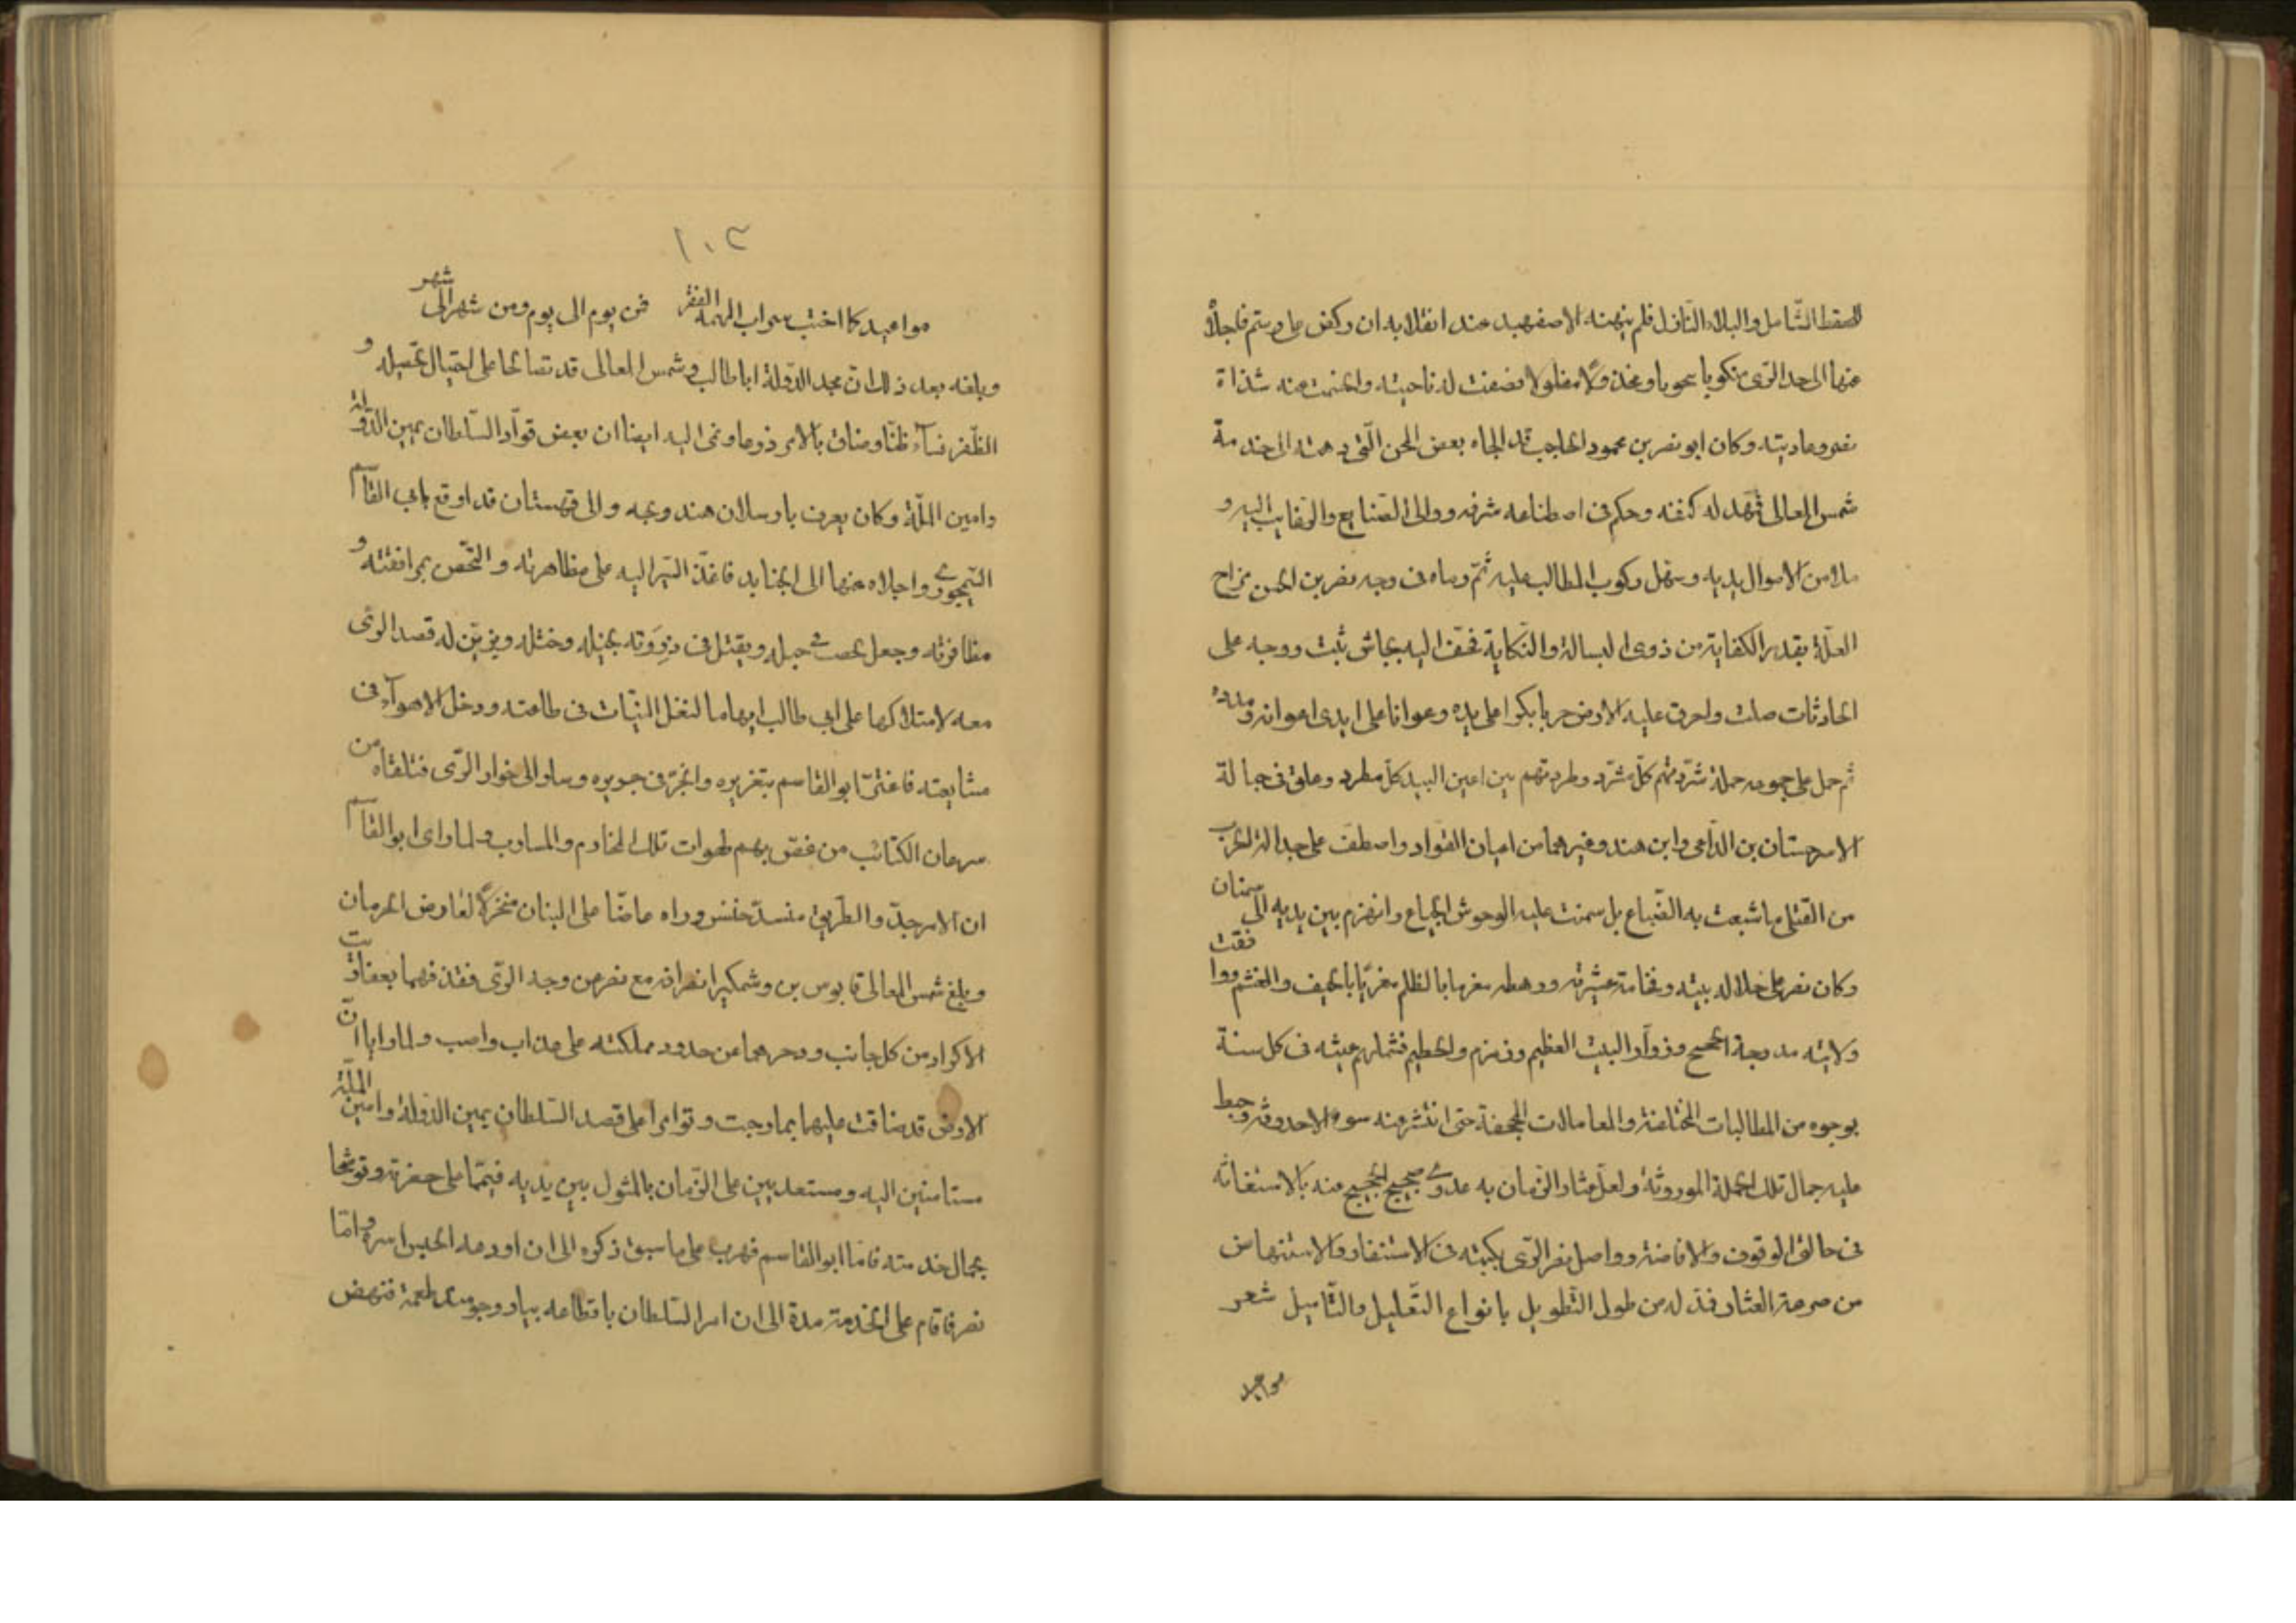 للقحط الشامل والبلاء النازل فلم ينهنه الاصفهبد عند انقلابه ان ركض على رستم فاجلاه
عنها الى حد الرى منكوبا محروبا ومخذولا مفلولا فضعفت له ناحيته وانحسمت عنه شذاة
نصر وعاديته وكان ابو نصر بن محمود الحاجب قد الجاه بعض المحن التى دهمته الى خدمة
شمس المعالى فمهد له كنفه وحكم فى اصطناعه شرفه ووالى الصنايع والرغايب اليه و
ملا من الاموال يديه وسهل ركوب المطالب عليه ثم رماه فى وجه نصر بن الحسن مزاح
العلة بقدر الكفاية من ذوى البسالة والنكاية فخف اليه بجاش ثبت ووجه على
الحادثات صلت واحرق عليه الارض حربا بكرا على يده وعوانا على ايدى اعوانه ومدده
ثم حمل على جموعه حملة شردتهم كل مشرد وطردتهم بين اعين البيد كل مطرد وعلق فى حبالة
الاسر جستان بن الداعى وابن هندو وغيرهما من اعيان القواد واصطف على جدالة الحرب
من القتلى ما شبعت به الضباع بل سمنت عليه الوحوش الجياع وانهزم بين يديه الى سمنان
وكان نصر على جلالة بيته وفخامة عشيرته ورهطه مغرما بالظلم مغرى بالحيف والغشم ففتت
ولايته مدرجة الحجيج وزوار البيت العظيم وزمزم والحطيم فشملهم عيثه فى كل سنة
بوجوه من المطالبات المختلفة والمعاملات المجحفة حتى انتشر منه سوء الاحدوثة وحبط
عليه جمال تلك الجملة الموروثة ولعل عثار الزمان به عدوى ضجيج الحجيج منه بالاستغاثه
فى حالتى الوقوف والافاضة وواصل نصر الرى بكتبه فى الاستنفار والاستنهاض
من صرعة العثار فمد له من طول التطويل بانواع التعليل والتاميل شعر
مواعيد
١٠٣
مواعيد كما اختب سراب المهمه القفر فمن يوم الى يوم ومن شهر الى شهر
وبلغه بعد ذلك ان مجد الدولة ابا طالب وشمس المعالى قد تصالحا على احتيال تحصيله و
الظفر فساء ظنا وضاق بالامر ذرعا ونمى اليه ايضا ان بعض قواد السلطان يمين الدولة
وامين الملة وكان يعرف بارسلان هندوبچه والى قهستان قد اوقع بابى القاسم
السيمجورى واجلاه عنها الى الجنابد فاغذ السير اليه على مظاهرته والتخصص بمرافقته و
مظافرته وجعل يحطب فى حبله ويقبل فى ذروته بحيله وختله ويزين له قصد الرى
معه لامتلاكها على ابى طالب ايهاما لنغل النيات فى طاعته ودخل الاهواء فى
مشايعته فاغتر ابو القاسم بتغريره وانجر فى جريره وسار الى خوار الرى فتلقاه من
سرعان الكتائب من غص بهم لهوات تلك المخارم والمسارب ولما راى ابو القاسم
ان الامر جد والطريق منسد خنس وراه عاضا على البنان منخرلا لعارض الحرمان
وبلغ شمس المعالى قابوس بن وشمكير انصرافه مع نصر عن وجه الرى فقذفهما بعفاريت
الاكراد من كل جانب ودحرهما عن حدود مملكته على عذاب واصب ولما رايا ان
الارض قد ضاقت عليهما بما رحبت وتوامرا على قصد السلطان يمين الدولة وامين الملة
مستامنين اليه ومستعديين على الزمان بالمثول بين يديه فيمما على حضرته وتوشحا
بجمال خدمته فاما ابو القاسم فهرب على ما سبق ذكره الى ان اودعه الحبس اسره واما
نصر فاقام على الخدمة مدة الى ان امر السلطان باقطاعه بيار وجومند طعمة فنهض